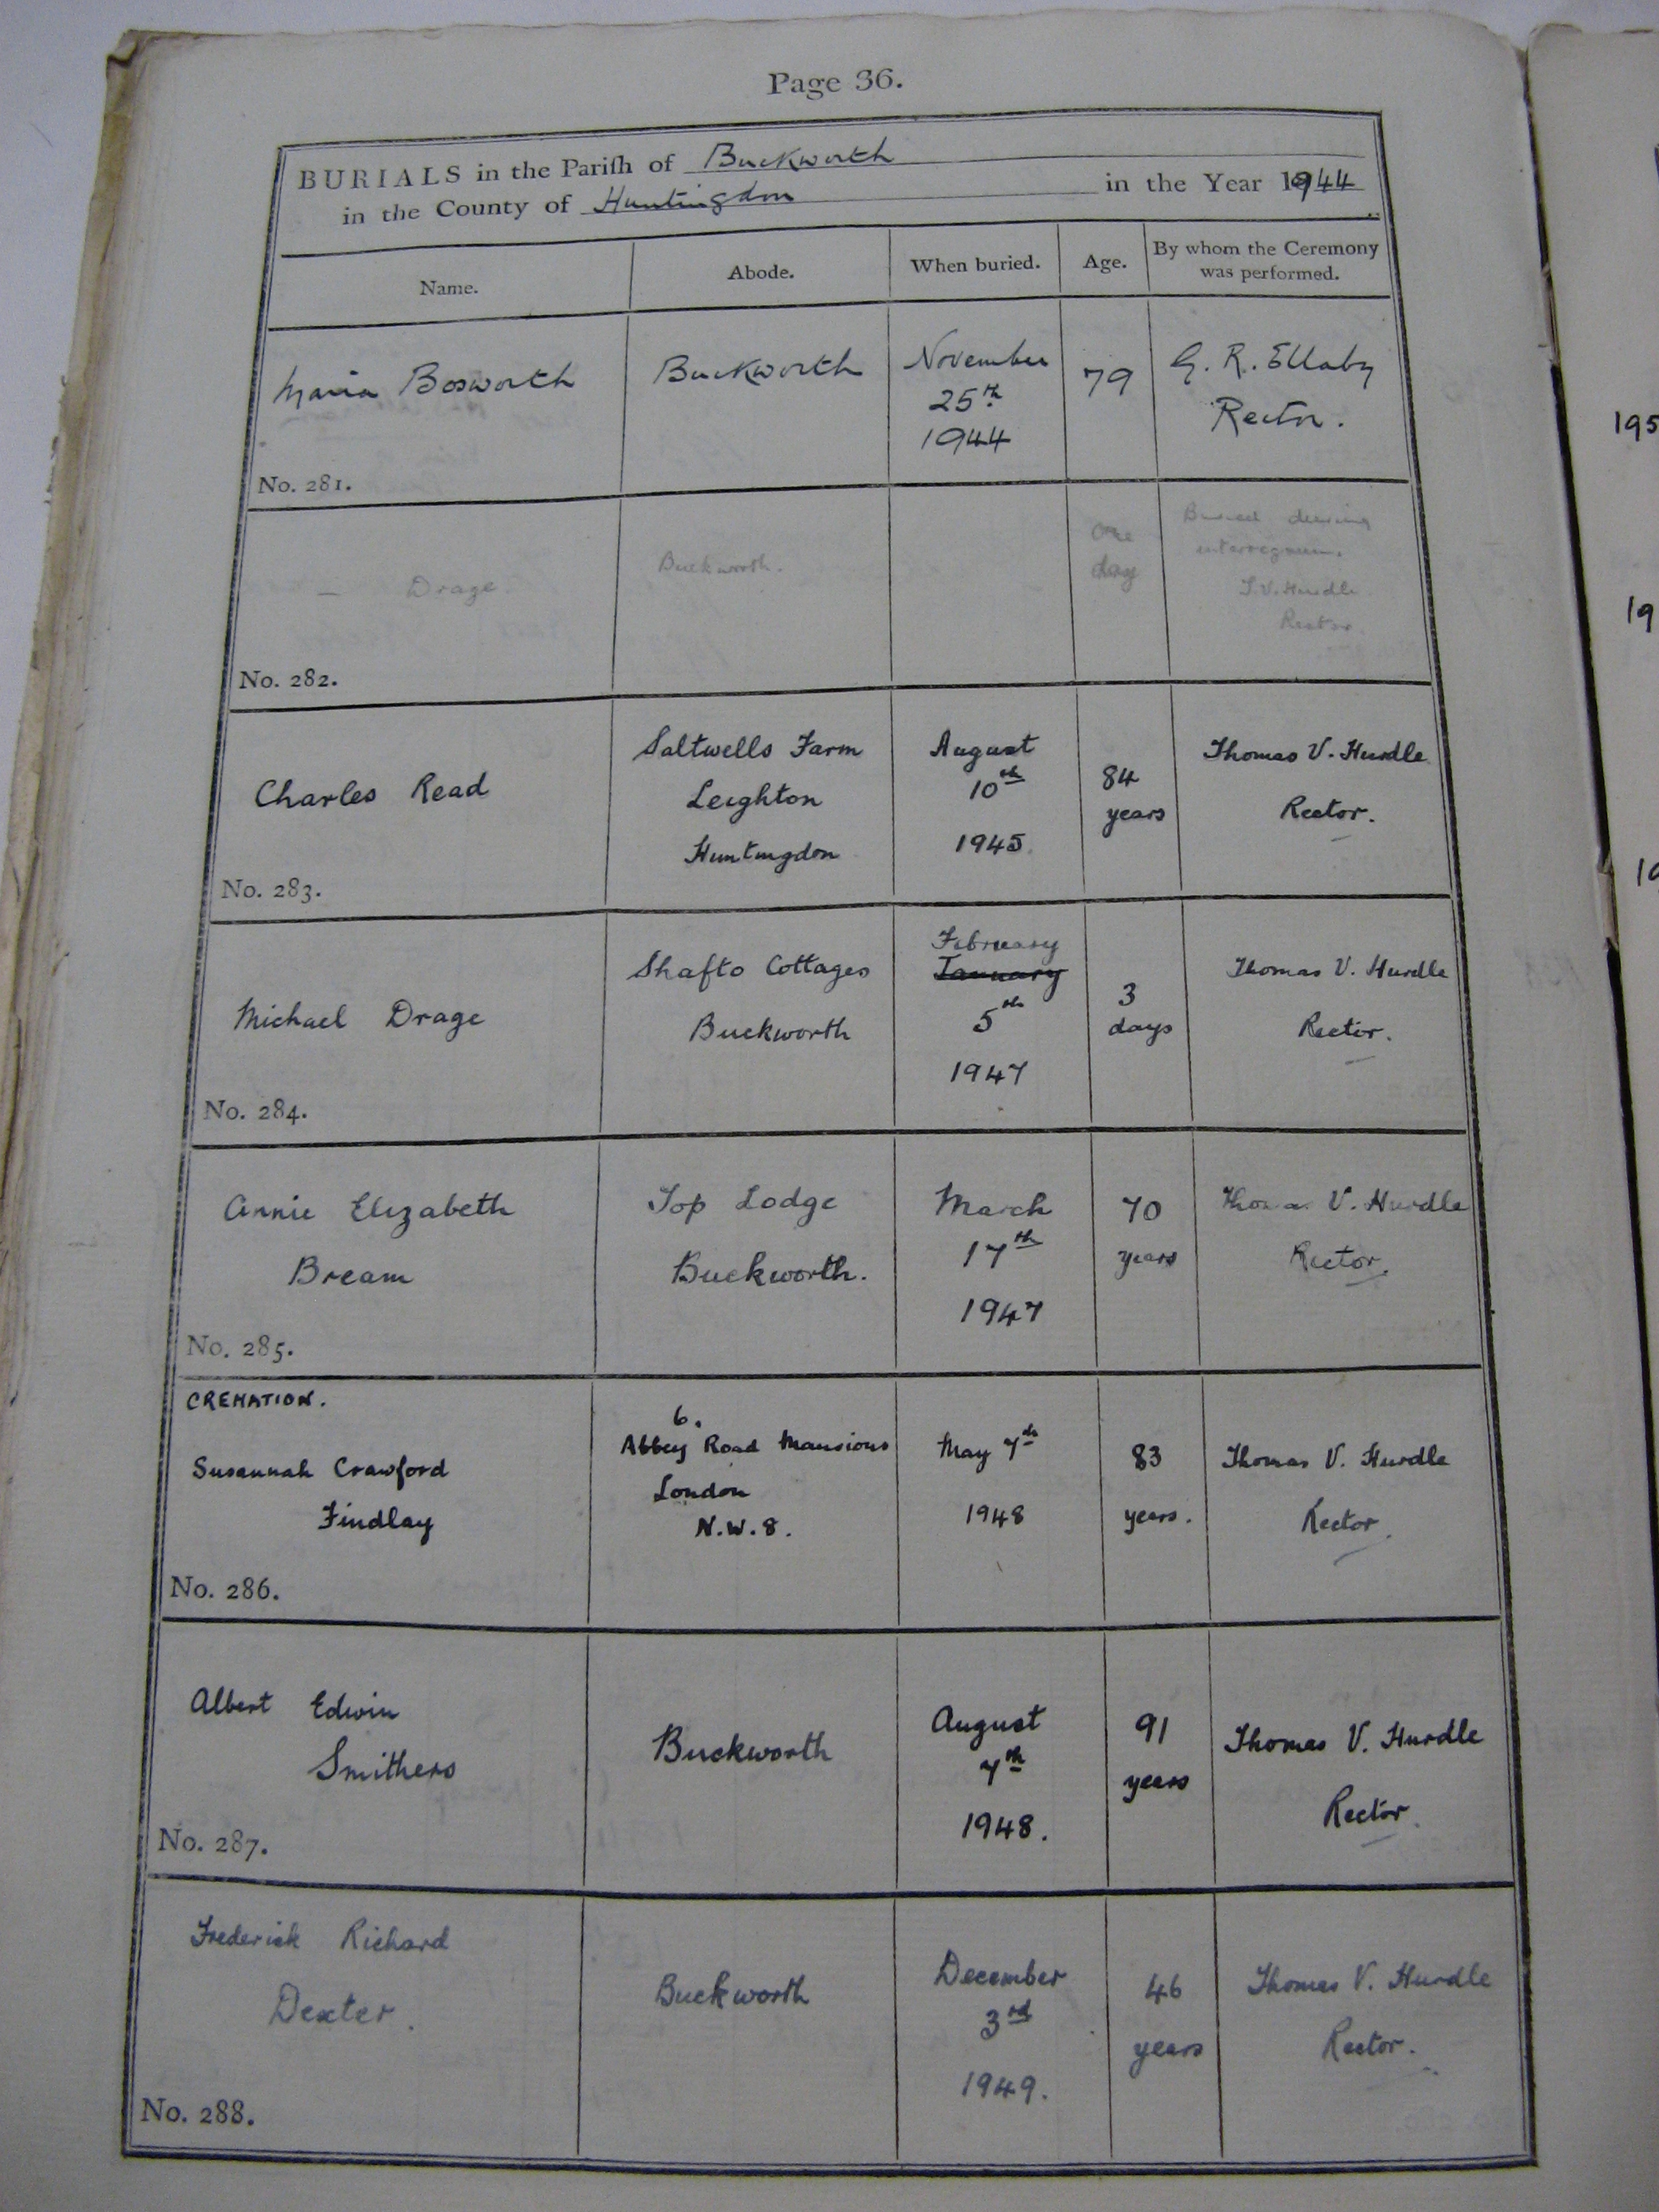 Page 36.
BURIALS in the Pariſh of Buckworth
in the County of Huntingdon in the Year 1944
Name. Abode. When buried. Age. By whom the Ceremony
was performed.
Maria Bosworth Buckworth November 79 G. R. Ellaby
25th Rector.
1944
No. 281.
— Drage. Buckworth. One Buried during
day interregnum.
T.V. Hurdle
Rector.
No. 282.
Charles Read Saltwells Farm August 84 Thomas V. Hurdle
Leighton 10th years Rector.
Huntingdon 1945.
No. 283.
February
Michael Drage Shafto Cottages January 3 Thomas V. Hurdle
Buckworth 5th days Rector.
1947
No. 284.
Annie Elizabeth Top Lodge March 70 Thomas V. Hurdle
Bream Buckworth. 17th years Rector.
1947
No. 285.
CREMATION. 6.
Susannah Crawford Abbey Road Mansions May 7th 83 Thomas V. Hurdle
Findlay London 1948 years. Rector.
N.W.8.
No. 286.
Albert Edwin Buckworth August 91 Thomas V. Hurdle
Smithers 7th years Rector.
1948.
No. 287.
Frederick Richard Buckworth December 46 Thomas V. Hurdle
Dexter. 3rd years Rector.
1949.
No. 288.
195
19